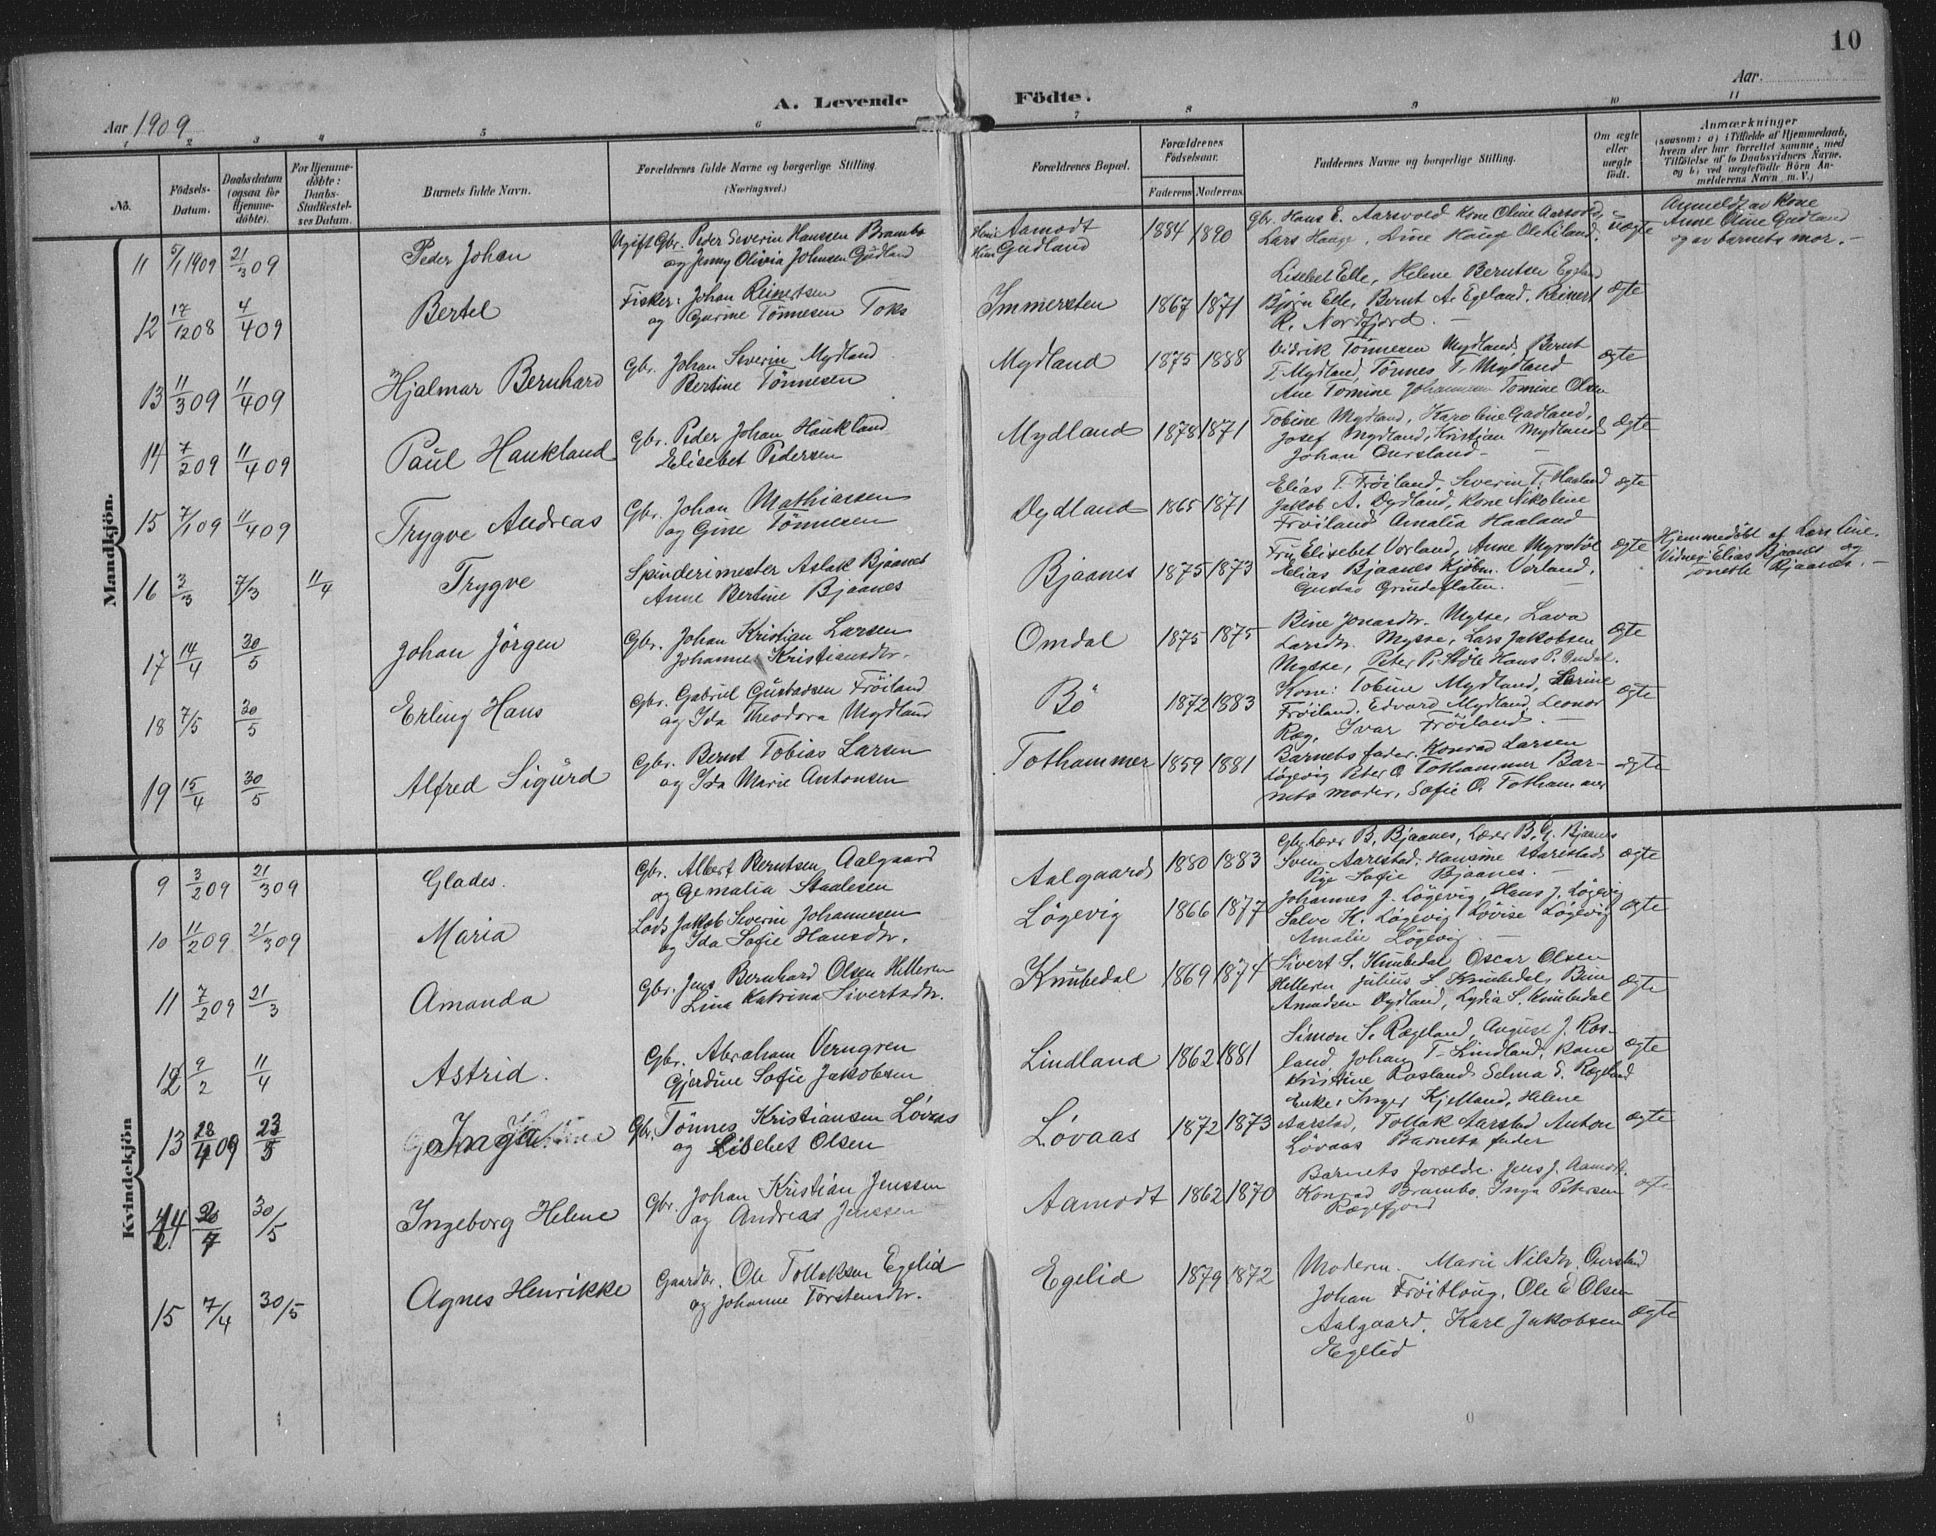 10
Aar 1909
A. Levende Födte.
Aar.
1 2 3 4 5 6 7 8 9 10 11
Nö.
Födsels-Datum.
Daabsdatum (ogsaa for Hjemme-döbte).
For Hjemme-döbte: Daabs-Stadfæstel-ses Datum.
Barnets fulde Navn.
Forældrenes fulde Navne og borgerlige Stilling. (Næringsvei.)
Forældrenes Bopæl.
Forældrenes Födselsaar.
Faderens Moderens
Faddernes Navne og borgerlige Stilling.
Om ægte eller uægte födt.
Anmærkninger
(saasom: a) i Tilfælde af Hjemmedaab, hvem der har forrettet samme, med Tilföielse af to Daabsvidners Navne, og b) ved uægtefödte Börn An-melderens Navn m. V.)
Mandkjön.
11 5/1 1909 21/3 09 Peder Johan
Ugift Gbr. Peder Severin Hanssen Brambo
og Jenny Olivia Johnsen Gudland
Aamodt
Gudland
1884 1890
Gbr. Hans E. Aarsvold Kone Oline Aarsvold,
Lars Hauge, Ane Hauge Ole Liland.
uægte
Anmeldt av kone
Anne Oline Gudland
og av barnets mor. -
12 17/12 08 4/4 09 Bertel
Fisker: Johan Reinertsen
og Gurine Tönnesen Toks
Immersten 1867 1871
Lisebet Elle, Helene Berntsen Egeland
Björn Elle, Bernt A. Egeland, Reinert
R. Nordfjord. -
ægte
13 11/3 09 11/4 09 Hjalmar Bernhard
Gbr. Johan Severin Mydland
Bertine Tönnesen
Mydland 1875 1888
Didrik Tönnesen Mydland, Bernt
T. Mydland, Tönnes T. Mydland
Ane Tomine Johannesen Tomine Olsen
ægte
14 7/2 09 11/4 09 Paul Haukland
Gbr. Peder Johan Haukland
Elisebet Pedersen
Mydland 1878 1871
Tobine Mydland, Karoline Gudland,
Josef Mydland, Kristian Mydland
Johan Oursland -
ægte
15 7/1 09 11/4 09 Trygve Andreas
Gbr. Johan Mathiassen
og Gine Tönnesen
Dydland 1865 1871
Elias T. Fröiland, Severin T. Haaland
Jakob A. Dydland, Kone Nikoline
Fröiland Amalia Haaland
ægte
16 3/3 7/3 11/4 Trygve
Spinderimester Aslak Bjaanes
Anne Bertine Bjaanes
Bjaanes 1875 1873
Fru Elisebet Vorland, Anne Myrstöl
Elias Bjaanes Kjöbm. Vorland,
Gustav Grundeflaten.
ægte
Hjemmedöbt af Lars Eine.
Vidner: Elias Bjaanes og
Bjaanes. -
17 14/4 30/5 Johan Jörgen
Gbr. Johan Kristian Larsen
Johanne Kristiansdtr.
Omdal 1875 1875
Bine Jonasdtr. Mysse, Lava
Larsdtr. Mysse, Lars Jakobsen
Mysse, Peter P. Stöle Hans P. Omdal.
ægte
18 7/5 30/5 Erling Hans
Gbr. Gabriel Gustavsen Fröiland
og Ida Theodora Mydland
Bö 1872 1883
Kone: Tobine Mydland, Serine
Fröiland, Edvard Mydland, Leonor
Ræg, Ivar Fröiland. -
ægte
19 15/4 30/5 Alfred Sigurd
Gbr. Bernt Tobias Larsen
og Ida Marie Antonsen
Tothammer 1859 1881
Barnets fader, Konrad Larsen
Lögevig Peter O Tothammer Bar-
nets moder, Sofie O. Tothammer
ægte
Kvindekjön
9 3/2 09 21/3 09 Glades.
Gbr. Albert Berntsen Aalgaard
og Gemalia Staalesen
Aalgaard 1880 1883
Gbr. Lærer B. Bjaanes, Lærer B. G. Bjaanes
Sven Aarstad, Hansine Aarstad
Pige Sofie Bjaanes. -
ægte
10 11/2 09 21/3 09 Maria
Lods Jakob Severin Johannesen
og Ida Sofie Hansdtr.
Lögevig 1866 1877
Johannes J. Lögevig, Hans J. Lögevig
Salve K. Lögevig Lovise Lögevig
Amalie Lögevig
ægte
11 7/2 09 21/3 Amanda
Gbr. Jens Bernhard Olsen Helleren
Lina Katrina Sivertsdtr.
Knubedal 1869 1874
Sivert S. Knubedal Oscar Olsen
Helleren Julius S. Knubedal, Bine
Amundsen Dydland, Lydia S. Knubedal
ægte
12 9/2 11/4 Astrid.
Gbr. Abraham Verngren
Gjerdine Sofie Jakobsen
Lindland 1862 1881
Simon S. Rægeland, August J. Ros-
land, Johan T. Lindland, Kone
Kristine Rosland Selma S. Rægeland
ægte
13 28/4 09 23/5
Gbr. Tönnes Kristiansen Lövaas
og Lisebet Olsen
Lövaas 1872 1873
Enke: Inger Kjelland, Helene
Aarstad, Tollak Aarstad Anton
Lövaas Barnets fader
ægte
14 30/5 Ingeborg Helene
Gbr. Johan Kristian Jenssen
og Andrea Jenssen
Aamodt 1862 1870
Barnets forældre. Jens J. Aamodt.
Konrad Brambo, Inga Petersen
Rægefjord
ægte
15 7/4 30/5 Agnes Henrikke
Gaardbr. Ole Tollaksen Egelid
og Johanne Torstensdtr.
Egelid 1879 1872
Moderen. Marie Nilsdtr. Oursland
Johan Fröitlong, Ole E Olsen
Aalgaard, Karl Jakobsen
Egelid
ægte